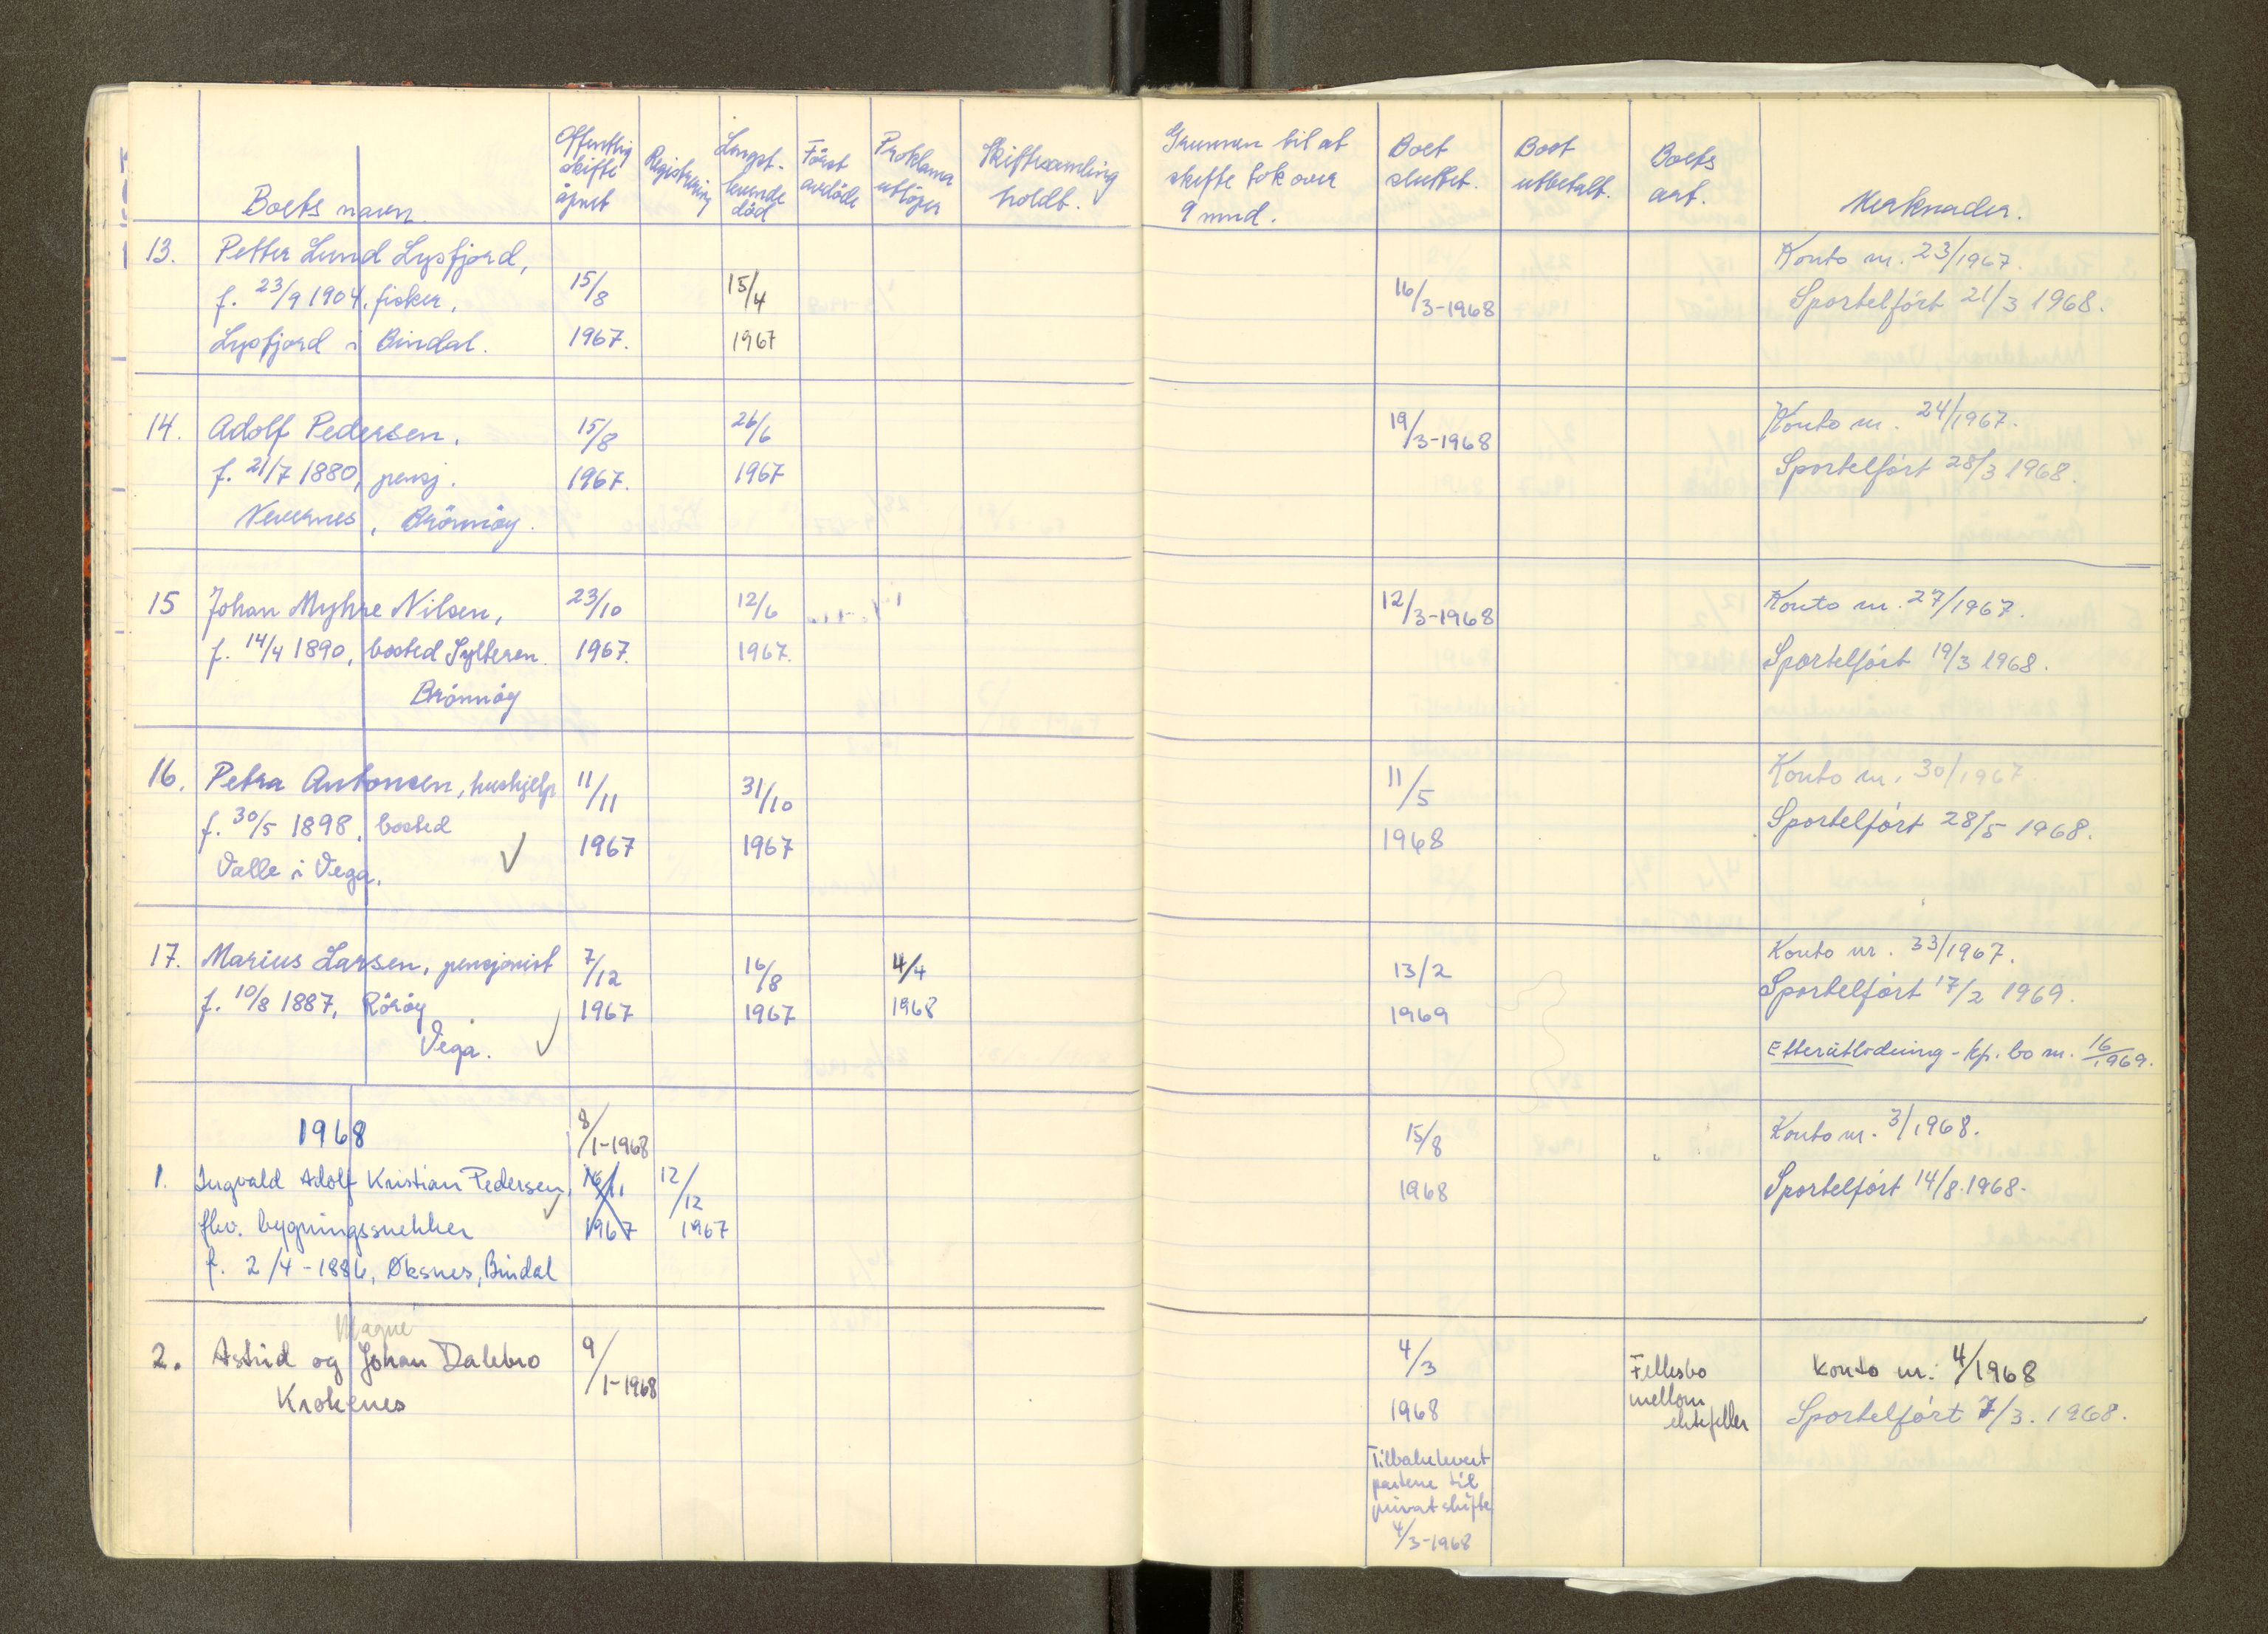 Boets navn.
Offentlig
skifte
åpnet
Registrering
Lengst-
levende
död
Först
avdöde
Proklama
utlöper
Skiftesamling
holdt.
Grunnen til at
skifte tok over
9 mnd.
Boet
sluttet.
Boet
utbetalt.
Boets
art.
Merknader.
13. Petter Lund Lysfjord,
f. 23/9 1904, fisker,
Lysfjord i Bindal.
15/8
1967.
15/4
1967
16/3-1968
Konto nr. 23/1967.
Sportelfört 21/3 1968.
14. Adolf Pedersen,
f. 21/7 1880, pensj.
Nevernes, Brönnöy.
15/8
1967.
26/6
1967
19/3-1968
Konto nr. 24/1967.
Sportelfört 28/3 1968.
15 Johan Myhre Nilsen,
f. 14/4 1890, bosted Sylteren.
Brönnöy
23/10
1967.
12/6
1967.
12/3-1968
Konto nr. 27/1967.
Sportelfört 19/3 1968.
16. Petra Antonsen, hushjelp
f. 30/5 1898, bosted
Valle i Vega.
11/11
1967
31/10
1967
11/5
1968
Konto nr. 30/1967.
Sportelfört 28/5 1968.
17. Marius Larsen, pensjonist
f. 10/8 1887, Röröy
Vega.
7/12
1967
16/8
1967
4/4
1968
13/2
1969
Konto nr. 33/1967.
Sportelfört 17/2 1969.
Etterutlodning - kp. bo nr. 16/1969.
1968
1. Ingvald Adolf Kristian Pedersen,
fhv. bygningssnekker
f. 2/4 - 1886, Øksnes, Bindal
8/1-1968
16/11
1967
12/12
1967
15/8
1968
Konto nr. 3/1968.
Sportelfört 14/8. 1968.
Magne
2. Astrid og Johan Dalebro
Krokenes
9/1-1968
4/3
1968
Tilbakelevert
partene til
privat skifte
4/3-1968
Fellesbo
mellom
ektefeller
Konto nr: 4/1968
Sportelfört 7/3. 1968.